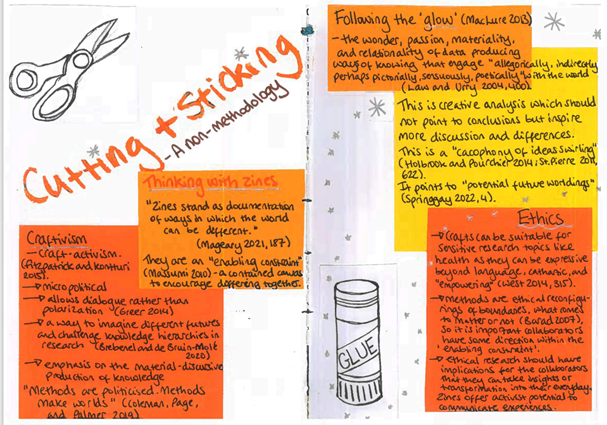 Cutting + Sticking
- A non-methodology
Thinking with zines
"Zines stand as documentation
of ways in which the world
can be different."
(Mageary 2021, 187)
They are an "enabling constraint"
(Massumi 2010) - a contained canvas
to encourage differing together.
Craftivism
- craft-activism.
(Fitzpatrick and Kontturi
2015).
→ micropolitical
→ allows dialogue rather than
polarization (Greer 2014)
→ a way to imagine different futures
and challenge knowledge hierarchies in
research (Bretenel and de Bruin-Molé
2020)
→ emphasis on the material-discursive
production of knowledge
"Methods are politicised. Methods
make worlds" (Coleman, Page,
and Palmer 2019)
Following the 'glow' (MacLure 2013)
- the wonder, passion, materiality,
and relationality of data producing
ways of knowing that engage "allegorically, indirectly
perhaps pictorially, sensuously, poetically" with the world
(Law and Urry 2004, 400).
This is creative analysis which should
not point to conclusions but inspire
more discussion and differences.
This is a "cacophony of ideas swirling"
(Holbrook and Pourchier 2014; St.Pierre 2011,
622).
It points to "potential future worldings"
(Springgay 2022, 4).
GLUE
Ethics
→ Crafts can be suitable for
sensitive research topics like
health as they can be expressive
beyond language, cathartic, and
"empowering" (West 2014, 315).
→ methods are ethical reconfigu-
rings of boundaries, what comes
to matter or not (Barad 2007),
so it is important collaborators
have some direction within the
'enabling constraint'.
→ Ethical research should have
implications for the collaborators
that they can take insights or
transformation into their everyday.
Zines offer activist potential to
communicate experiences.